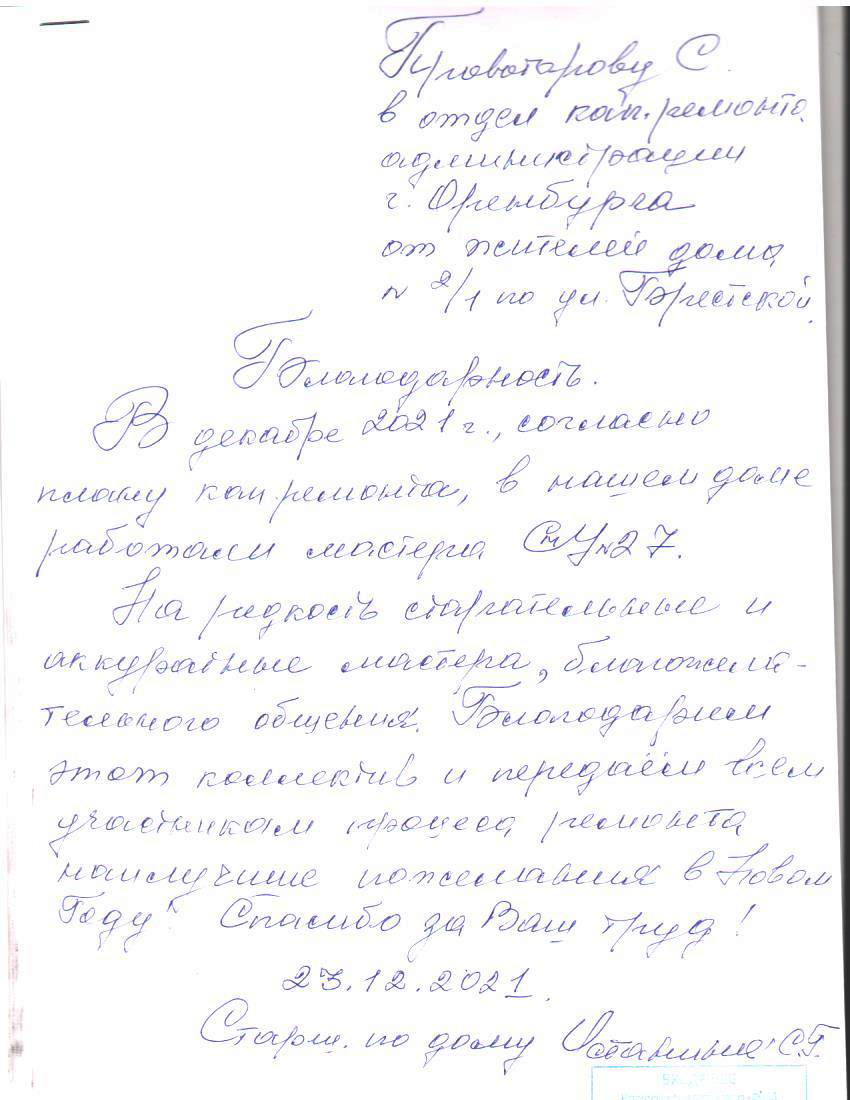 Пуговотарову С.
в отдел кап. ремонта
администрации
г. Оренбурга
от жителей дома
N 2/1 по ул. Брестской.
Благодарность.
В декабре 2021 г., согласно
плану кап. ремонта, в нашем доме
работали мастера СМУ N 27.
На редкость старательные и
аккуратные мастера, благожела-
тельного общения. Благодарим
этот коллектив и передаём всем
участникам процеса ремонта
наилучшие пожелания в Новом
Году! Спасибо за Ваш труд!
23.12.2021.
Старш. по дому С.Г.